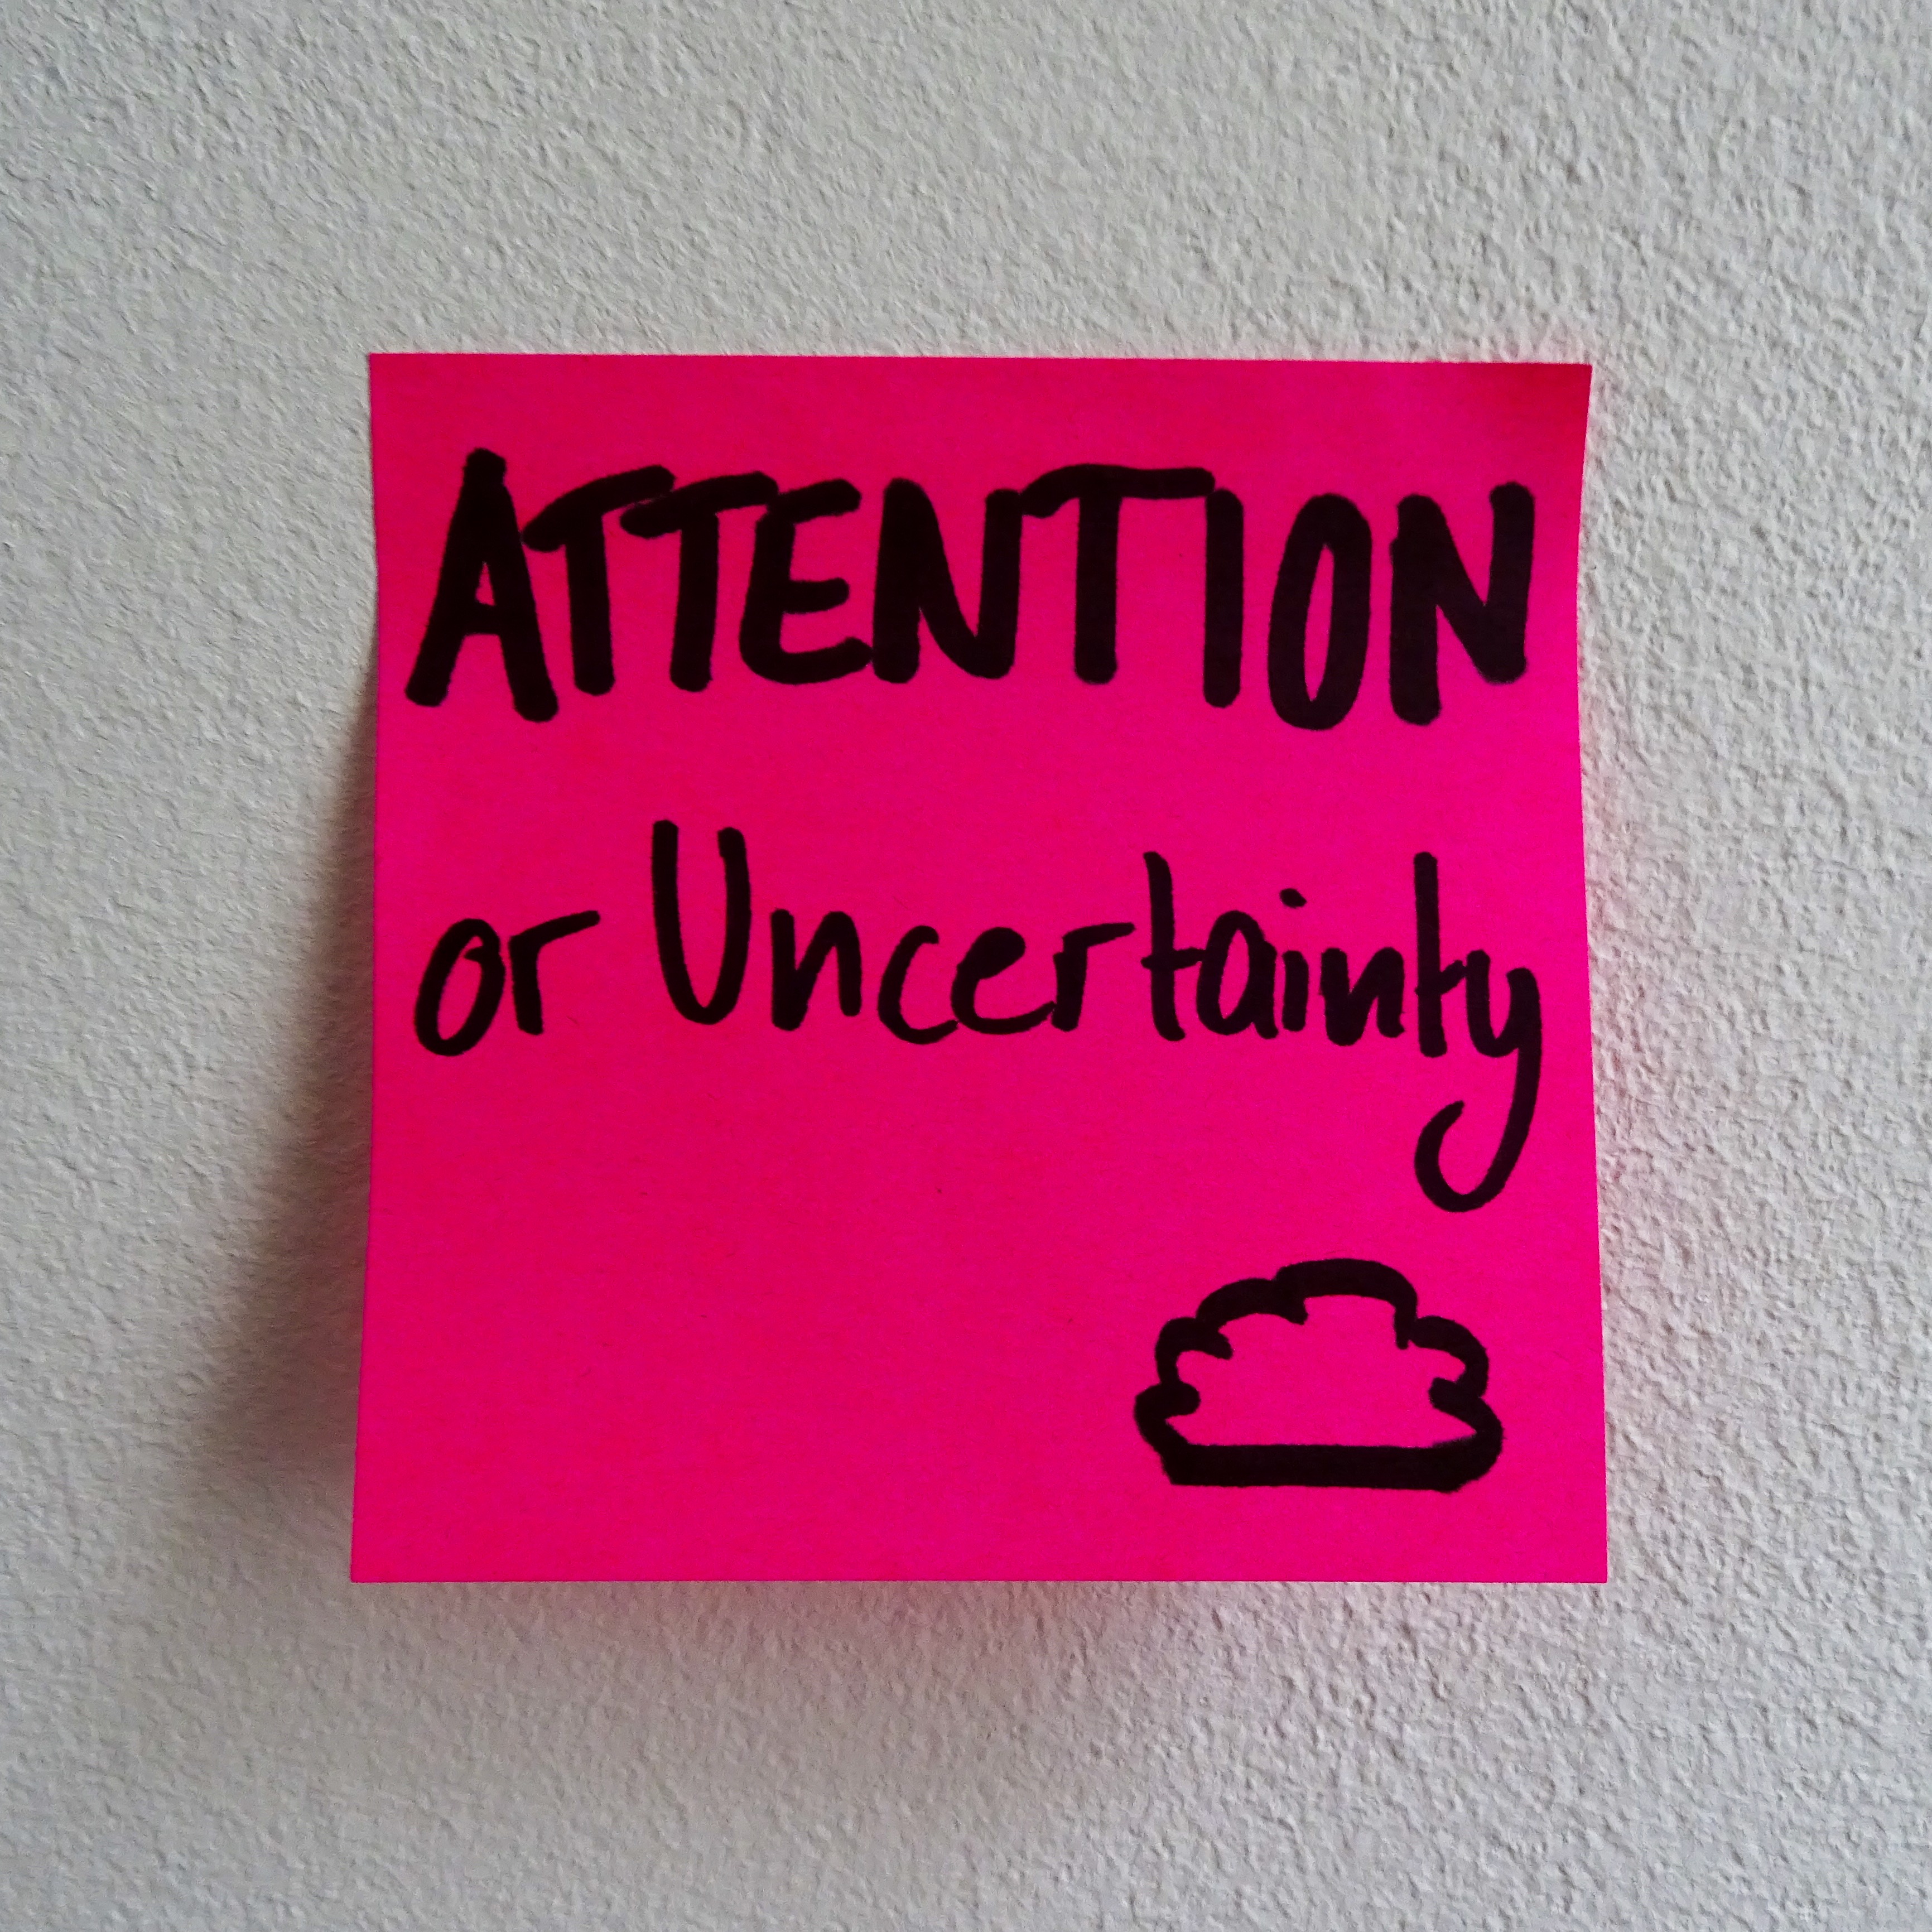 ATTENTION
or Uncertainty